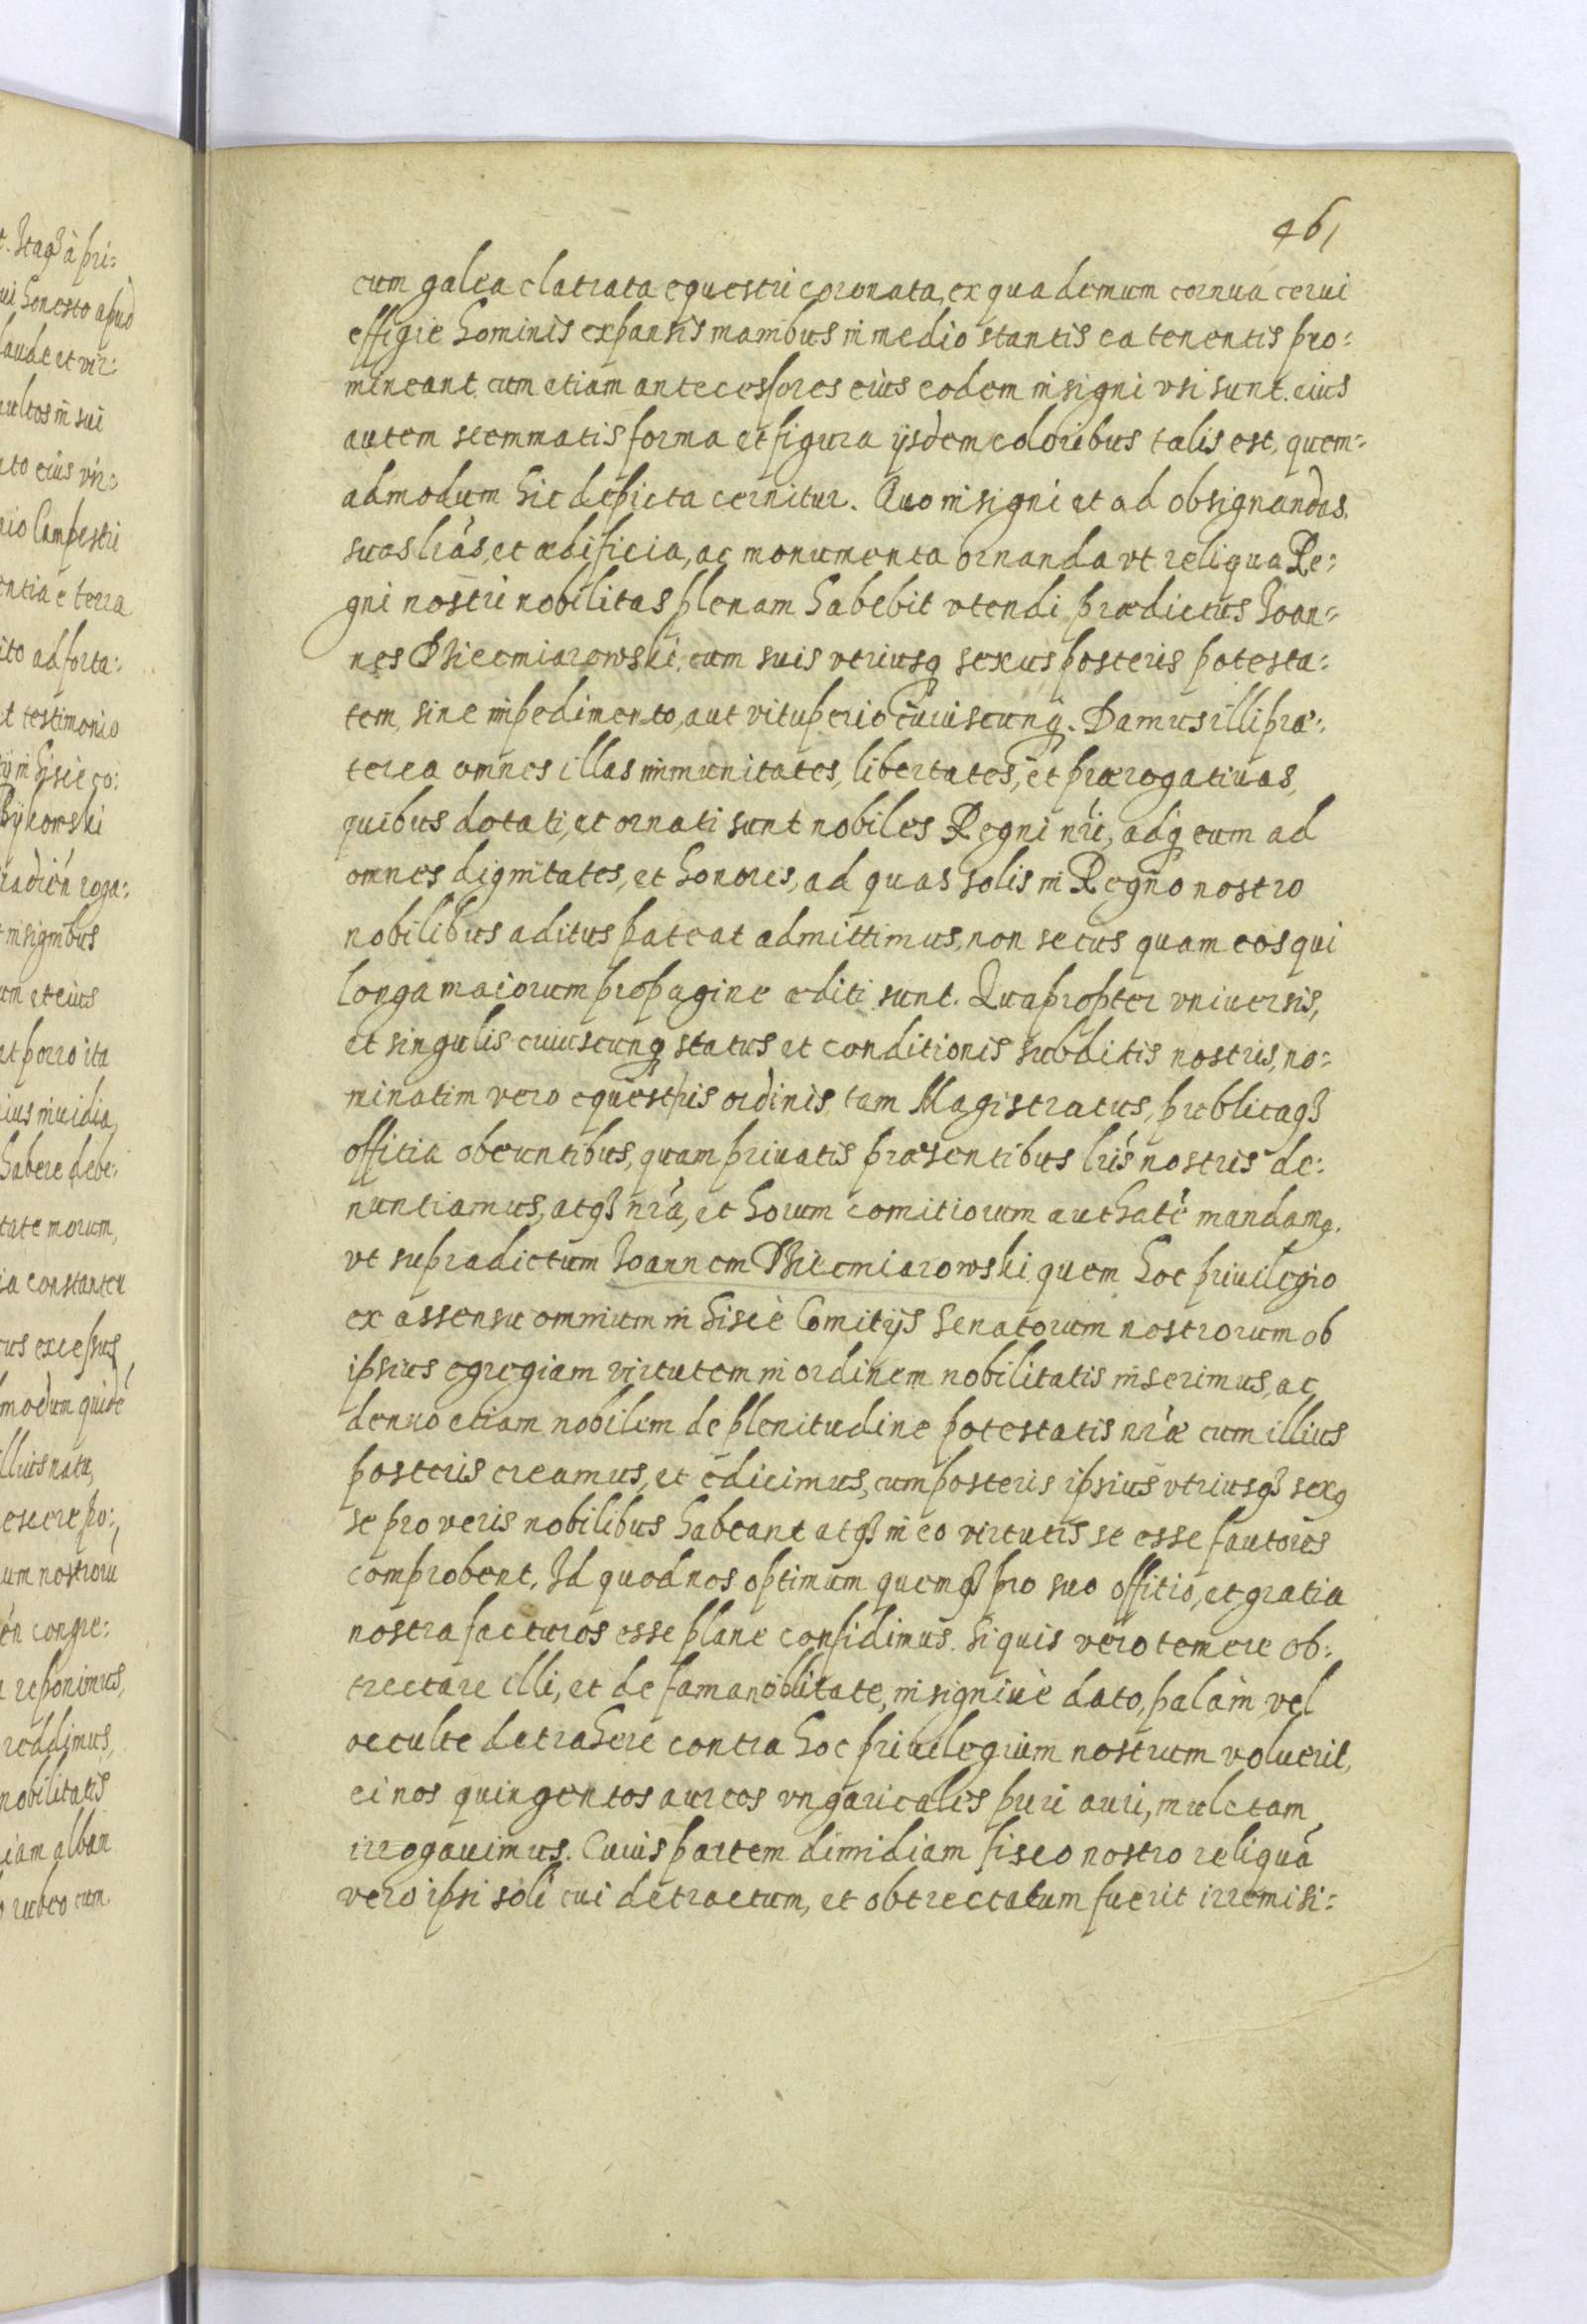 t. Itaqꝫ à pri:
ui honesto apud
laude et vir:
ultos in sui
ato eius vir:
nio Campestri
entia è terra
ito ad forta:
it testimonio
ij in hisce co:
Bykowski
radien roga:
insignibus
um et eius
at porro ita
ius inuidia,
habere debe:
tate morum,
ia constanter
us excessus
modum quidē
illius natu,
escere po:
um nostrorū
en congre:
a reponimus,
reddimus,
nobilitatis
iam alban
o rubeo cum
461
cum galea clatrata equestri coronata, ex qua demum cornua cerui
effigie hominis expansis manibus in medio stantis ea tenentis pro:
mineant, cum etiam antecessores eius eodem insigni vsi sunt. eius
autem stemmatis forma et figura ijsdem coloribus talis est, quem:
admodum hic depicta cernitur. Quo insigni et ad obsignandas
suas lr̃as, et ædificia, ac monumenta ornanda vt reliqua Re:
gni nostri nobilitas plenam habebit vtendi prædictus Ioan:
nes Niecmiarowski, cum suis vtriusq sexus posteris potesta:
tem, sine impedimento, aut vituperio cuiuscunq. Damus illi præ:
terea omnes illas immunitates, libertates, et prærogatiuas,
quibus dotati, et ornati sunt nobiles Regni nr̃i, adq eum ad
omnes dignitates, et honores, ad quas solis in Regno nostro
nobilibus aditus pateat admittimus, non secus quam eos qui
longa maiorum propagine æditi sunt. Quapropter vniuersis,
et singulis cuiuscunq status et conditionis subditis nostris, no:
minatim vero equestris ordinis, tam Magistratus, publicaqꝫ
offitia obeuntibus, quam priuatis præsentibus lr̃is nostris de:
nuntiamus, atqꝫ nr̃a, et horum comitiorum authatē mandamꝰ.
vt supradictum Ioannem Niecmiarowski, quem hoc priuilegio
ex assensu omnium in hisce Comitijs Senatorum nostrorum ob
ipsius egregiam virtutem in ordinem nobilitatis inserimus, ac
denuo etiam nobilem de plenitudine potestatis nr̃æ cum illius
posteris creamus, et edicimus, cum posteris ipsius vtriusqꝫ sexꝰ
se pro veris nobilibus habeant atqꝫ in eo virtutis se esse fautores
comprobent. Id quod nos optimum quemqꝫ pro suo offitio, et gratia
nostra facturos esse plane confidimus. Si quis vero temere ob:
trectare illi, et de fama nobilitate, insigniuè dato, palàm vel
occulte detrahere contra hoc priuilegium nostrum voluerit,
ei nos quingentos aureos vngaricales puri auri, mulctam
irrogauimus. Cuius partem dimidiam fisco nostro reliquā
vero ipsi soli cui detractum, et obtrectatum fuerit irremisi: